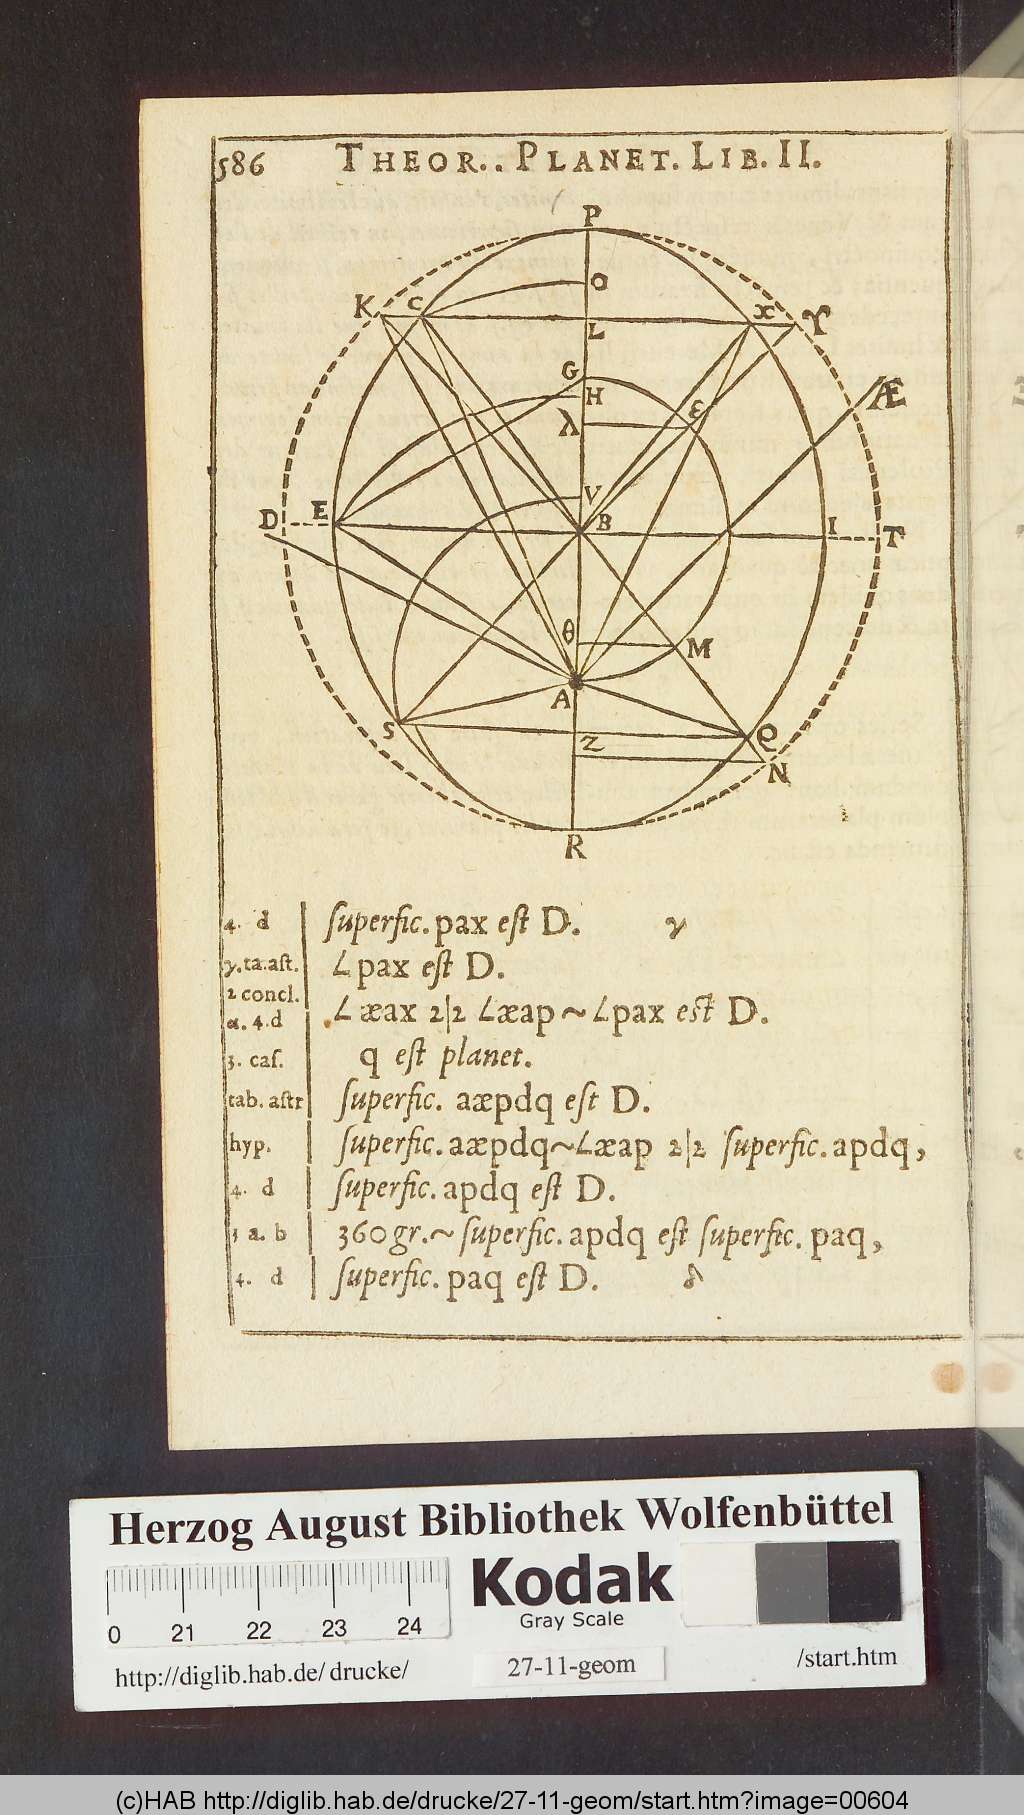 586 THEOR.. PLANET. LIB. II.
P
O
K C X ϒ
L
G
H Æ
λ ε
V
D E B I T
θ
M
A
S Z Q
N
R
4. d | ſuperfic. pax eſt D. γ
γ. ta. aſt. | ∠ pax eſt D.
2 concl.
α. 4. d | ∠ æax 2|2 ∠æap ~ ∠pax eſt D.
3. caſ. | q eſt planet.
tab. aſtr | ſuperfic. aæpdq eſt D.
hyp. | ſuperfic. aæpdq~∠æap 2|2 ſuperfic. apdq,
4. d | ſuperfic. apdq eſt D.
3 a. b | 360 gr. ~ ſuperfic. apdq eſt ſuperfic. paq,
4. d | ſuperfic. paq eſt D. δ
Herzog August Bibliothek Wolfenbüttel
Kodak
Gray Scale
0 21 22 23 24
http://diglib.hab.de/ drucke/ 27-11-geom /start.htm
(c)HAB http://diglib.hab.de/drucke/27-11-geom/start.htm?image=00604